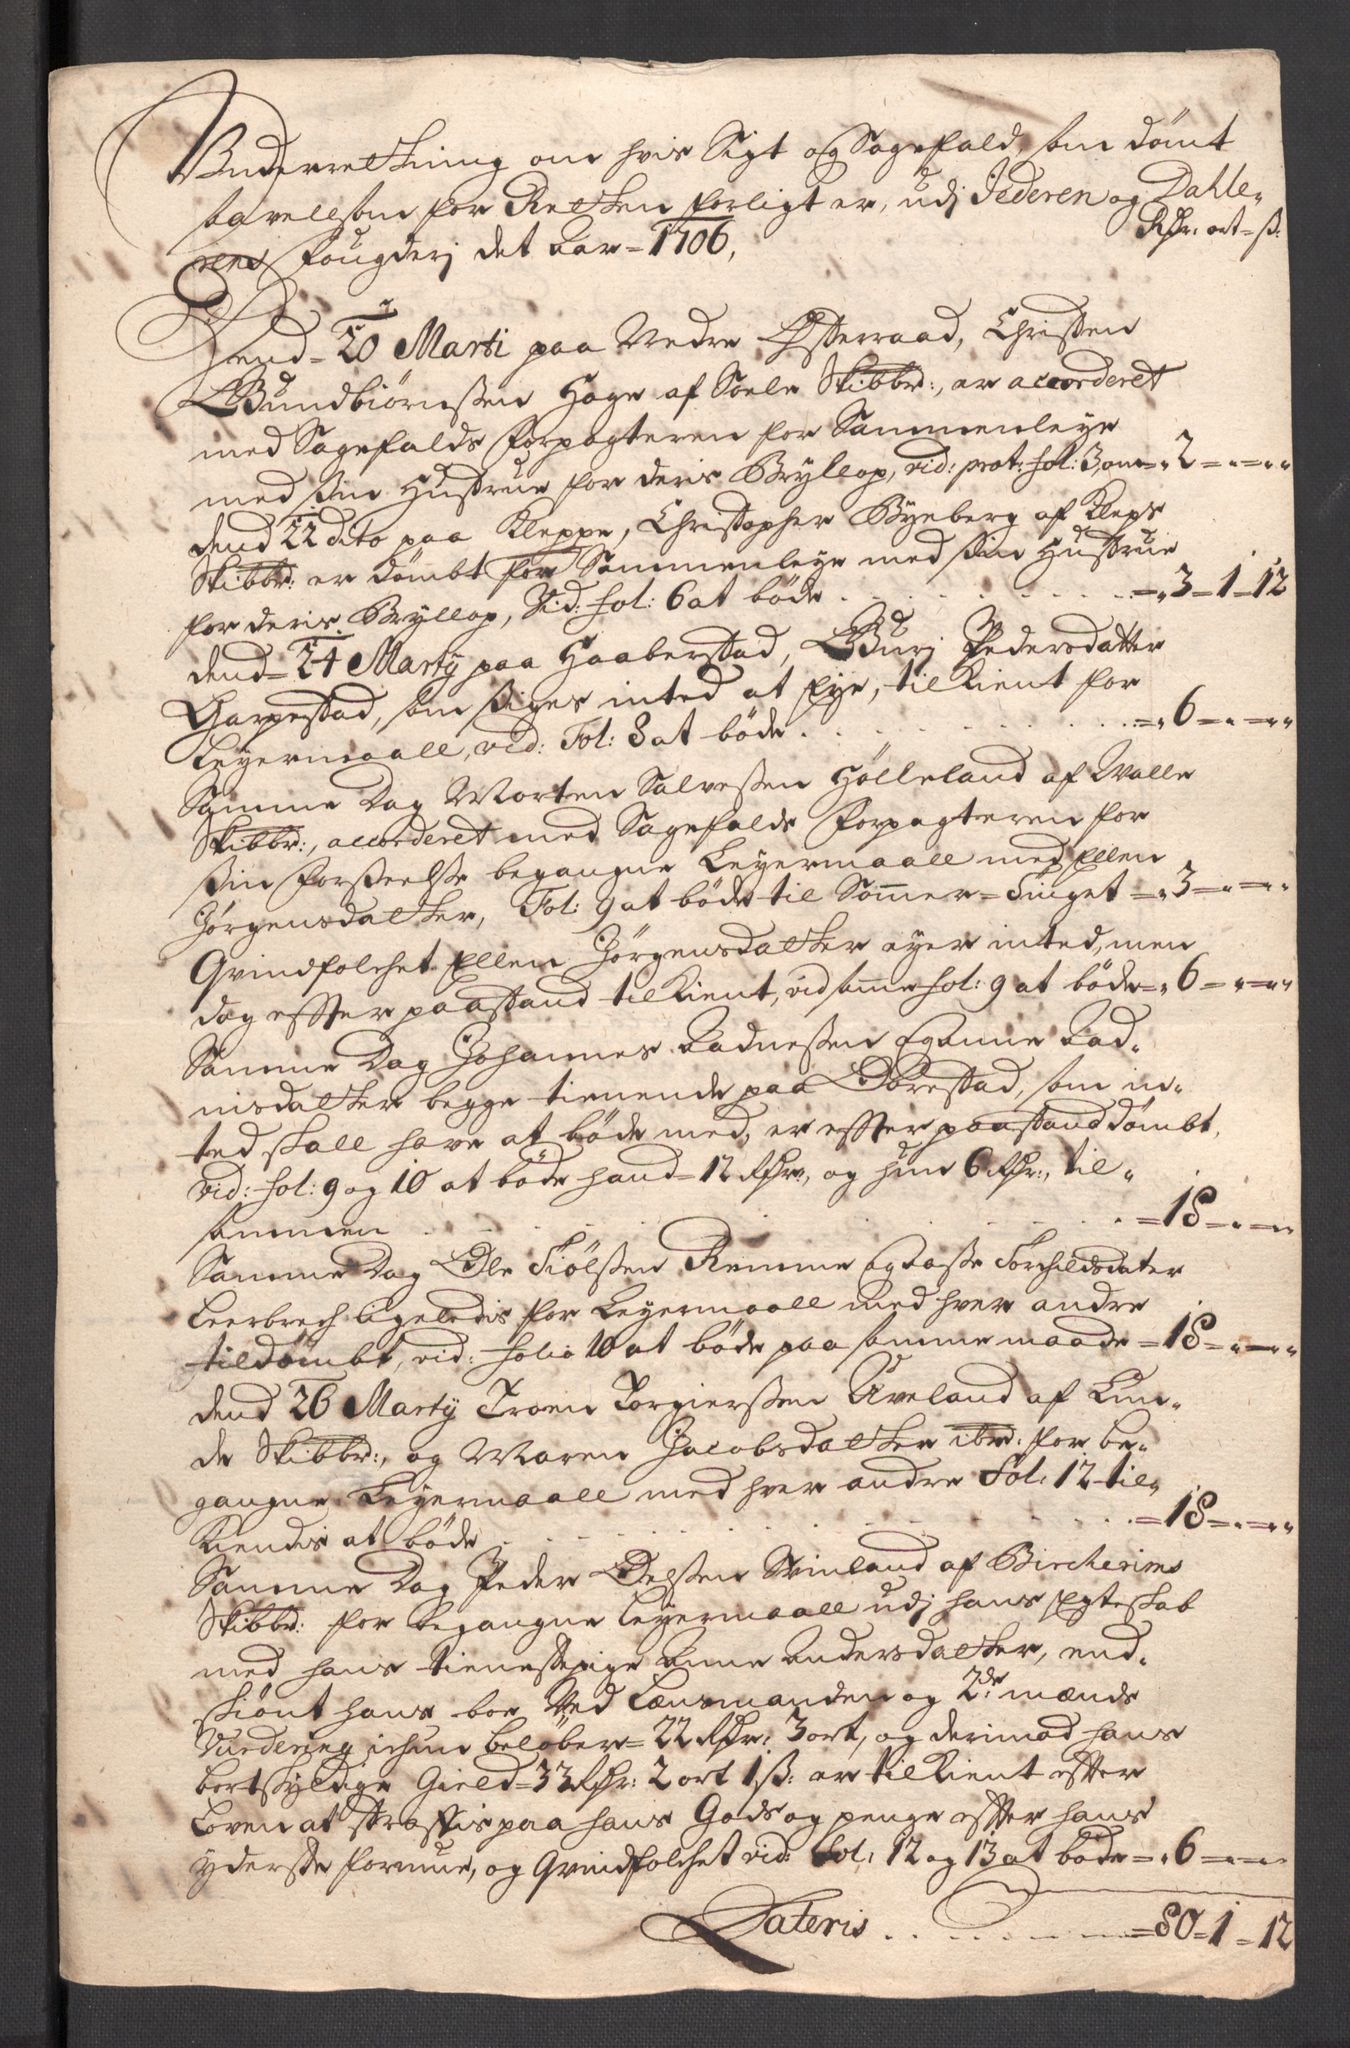 Underretning om hvis Sigt og Sagefald, som dömt
saavelsom for Retten forligt er, udj Jederen og Dahle-
rens Fougderj det Aar = 1706, Rdr: ort = ß:
Dend = 20 Marti paa Nedre Österraad, Christen
Gundbiörnßen Hage af Soele Skibbrd:, er accorderet
med Sagefalds Forpagteren for Sammenleye
med sin Hustrue for deris Bryllop, vid: prot: fol: 3 =„2 = „ = „
dend 22 dito paa Kleppe, Christopher Byeberg af Kleps
Skibbrd: er dömbt for Sammenleye med sin Hustrue
for deris Bryllop, Vid: fol: 6 at böde . . . =„3 = 1 = 12
dend = 24 Martij paa Haaberstad, Gurj Pedersdatter
Garpestad, som siges inted at eye, tilkient for
Leyermaall, vid: Fol: 8 at böde . . . =„6 = „ = „
Samme Dag Morten Salveßen Hölleland af Walle
Skibbrd:, accorderet med Sagefalds Forpagteren for
sin Forseelse begangne Leyermaall med Ellen
Jörgensdatter, Fol: 9 at böde til Sommer = Tinget =„3 = „ = „
Qvindfolchet Ellen Jörgensdatter eyer inted, men
dog effter paastand tilkient, vid samme fol: 9 at böde =„6 = „ = „
Samme Dag Johannes Aadneßen Anne Aad-
nisdatter begge tienende paa Obrestad, som in-
ted skall have at böde med, er effter paastand dömbt,
vid: fol: 9 og 10 at böde hand = 12 Rdr:, og hun 6 Rdr:, til-
sammen . . . = 18 = „ = „
Samme Dag Ole Tiölßen Remme og Aaße Torchildsdater
Leerbrech ligeledis for Leyermaall med hver andre
tildömbt, vid: folio 10 at böde paa samme maade = 18 = „ = „
dend 26 Martij Troen Torgierßen Aaveland af Lun-
de Skibbrd:, og Maren Jacobsdatter ibd: for be-
gangne Leyermaall med hver andre Fol: 12 til-
kiendis at böde . . . = 18 = „ = „
Samme Dag Peder Oelßen Svinland af Bircherims
Skibbrd: for begangne Leyermaall udj hans Egteskab
med hans tieneste pige Anne Andersdatter, end-
skiönt hans boe Ved Lænsmanden og 2de mænds
Vurdering ichun belöber = 22 Rdr: 3 ort, og derimod hans
bortskyldige Gield = 33 Rdr: 2 ort 1 ß: er tilkient effter
Loven at straffis paa hans Gods og penge effter hans
yderste formue, og Qvindfolchet vid: Fol: 12 og 13 at böde =„6 = „ = „
Lateris . . . = 80 = 1 = 12